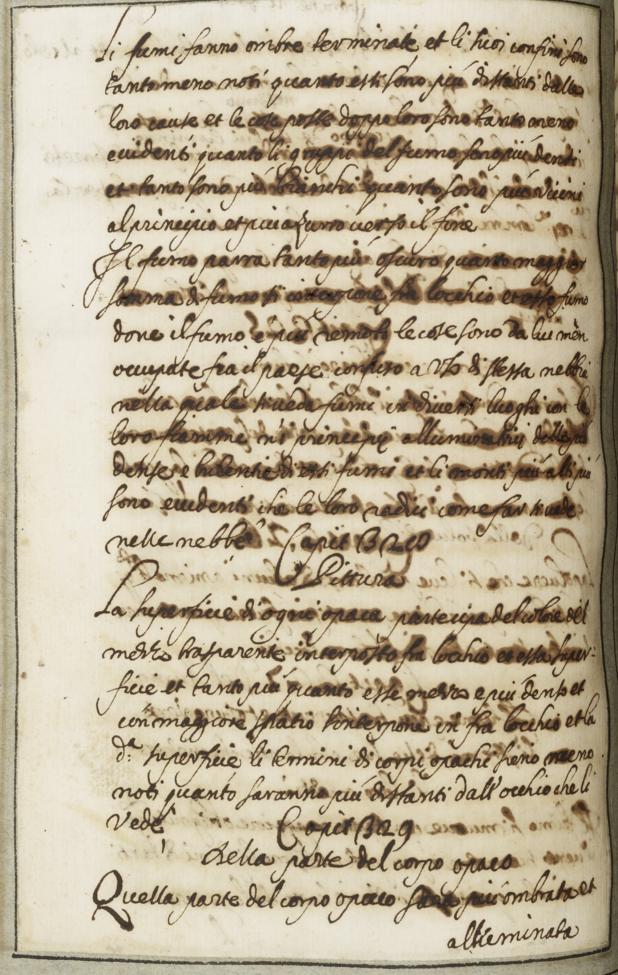 Li fumi fanno ombre terminate et li suoi confini sono
tanto meno noti quanto essi sono piu distanti dalle
loro cause et le cose poste doppo loro sono tanto meno
evidenti quanto li gruppi del fumo sono piu densi
et tanto sono piu bianchi quanto sono piu vicini
al principio et piu azurro verso il fine
Il fumo parra tanto piu oscuro quanto maggior
somma di fumo si fra locchio et esso fumo
dove il fumo e piu remoto le cose sono da lui men
occupate fra il paese confuso a di spessa nebbia
nella quale si veda fumi in diversi luoghi con le
loro fiamme ne principij alluminatrij delle piu
dense di essi fumi et li monti piu alti piu
sono evidenti che le loro radici come far si vede
nelle nebbe Capit 328
Pittura
La superficie di ogni opaco partecipa del colore del
mezzo trasparente interposto fra locchio et essa super-
ficie et tanto piu quanto esse mezzo e piu denso et
con maggiore spatio s'interpone in fra locchio et la
dª superficie li termini di corpi opachi fieno meno
noti quanto saranno piu distanti dall'occhio che li
vede Capit 329
Della parte del corpo opaco
Quella parte del corpo opaco sara piu ombrata et
alluminata